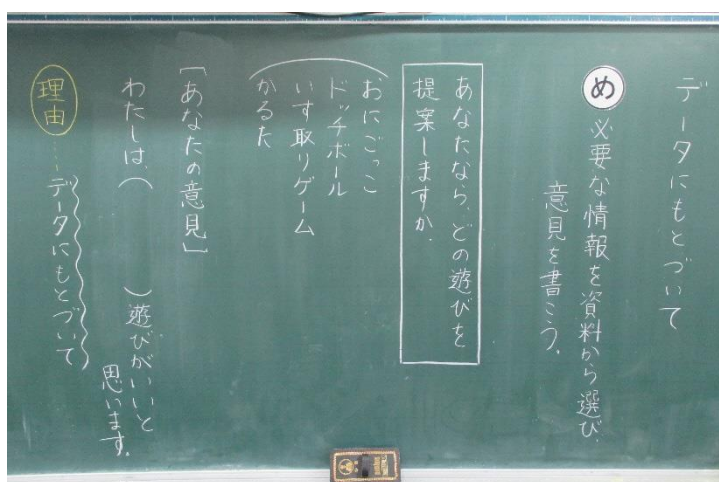 データにもとづいて
め 必要な情報を資料から選び、
意見を書こう。
あなたなら、どの遊びを
提案しますか。
おにごっこ
ドッチボール
いす取りゲーム
かるた
「あなたの意見」
わたしは、( )遊びがいいと
思います。
理由……データにもとづいて